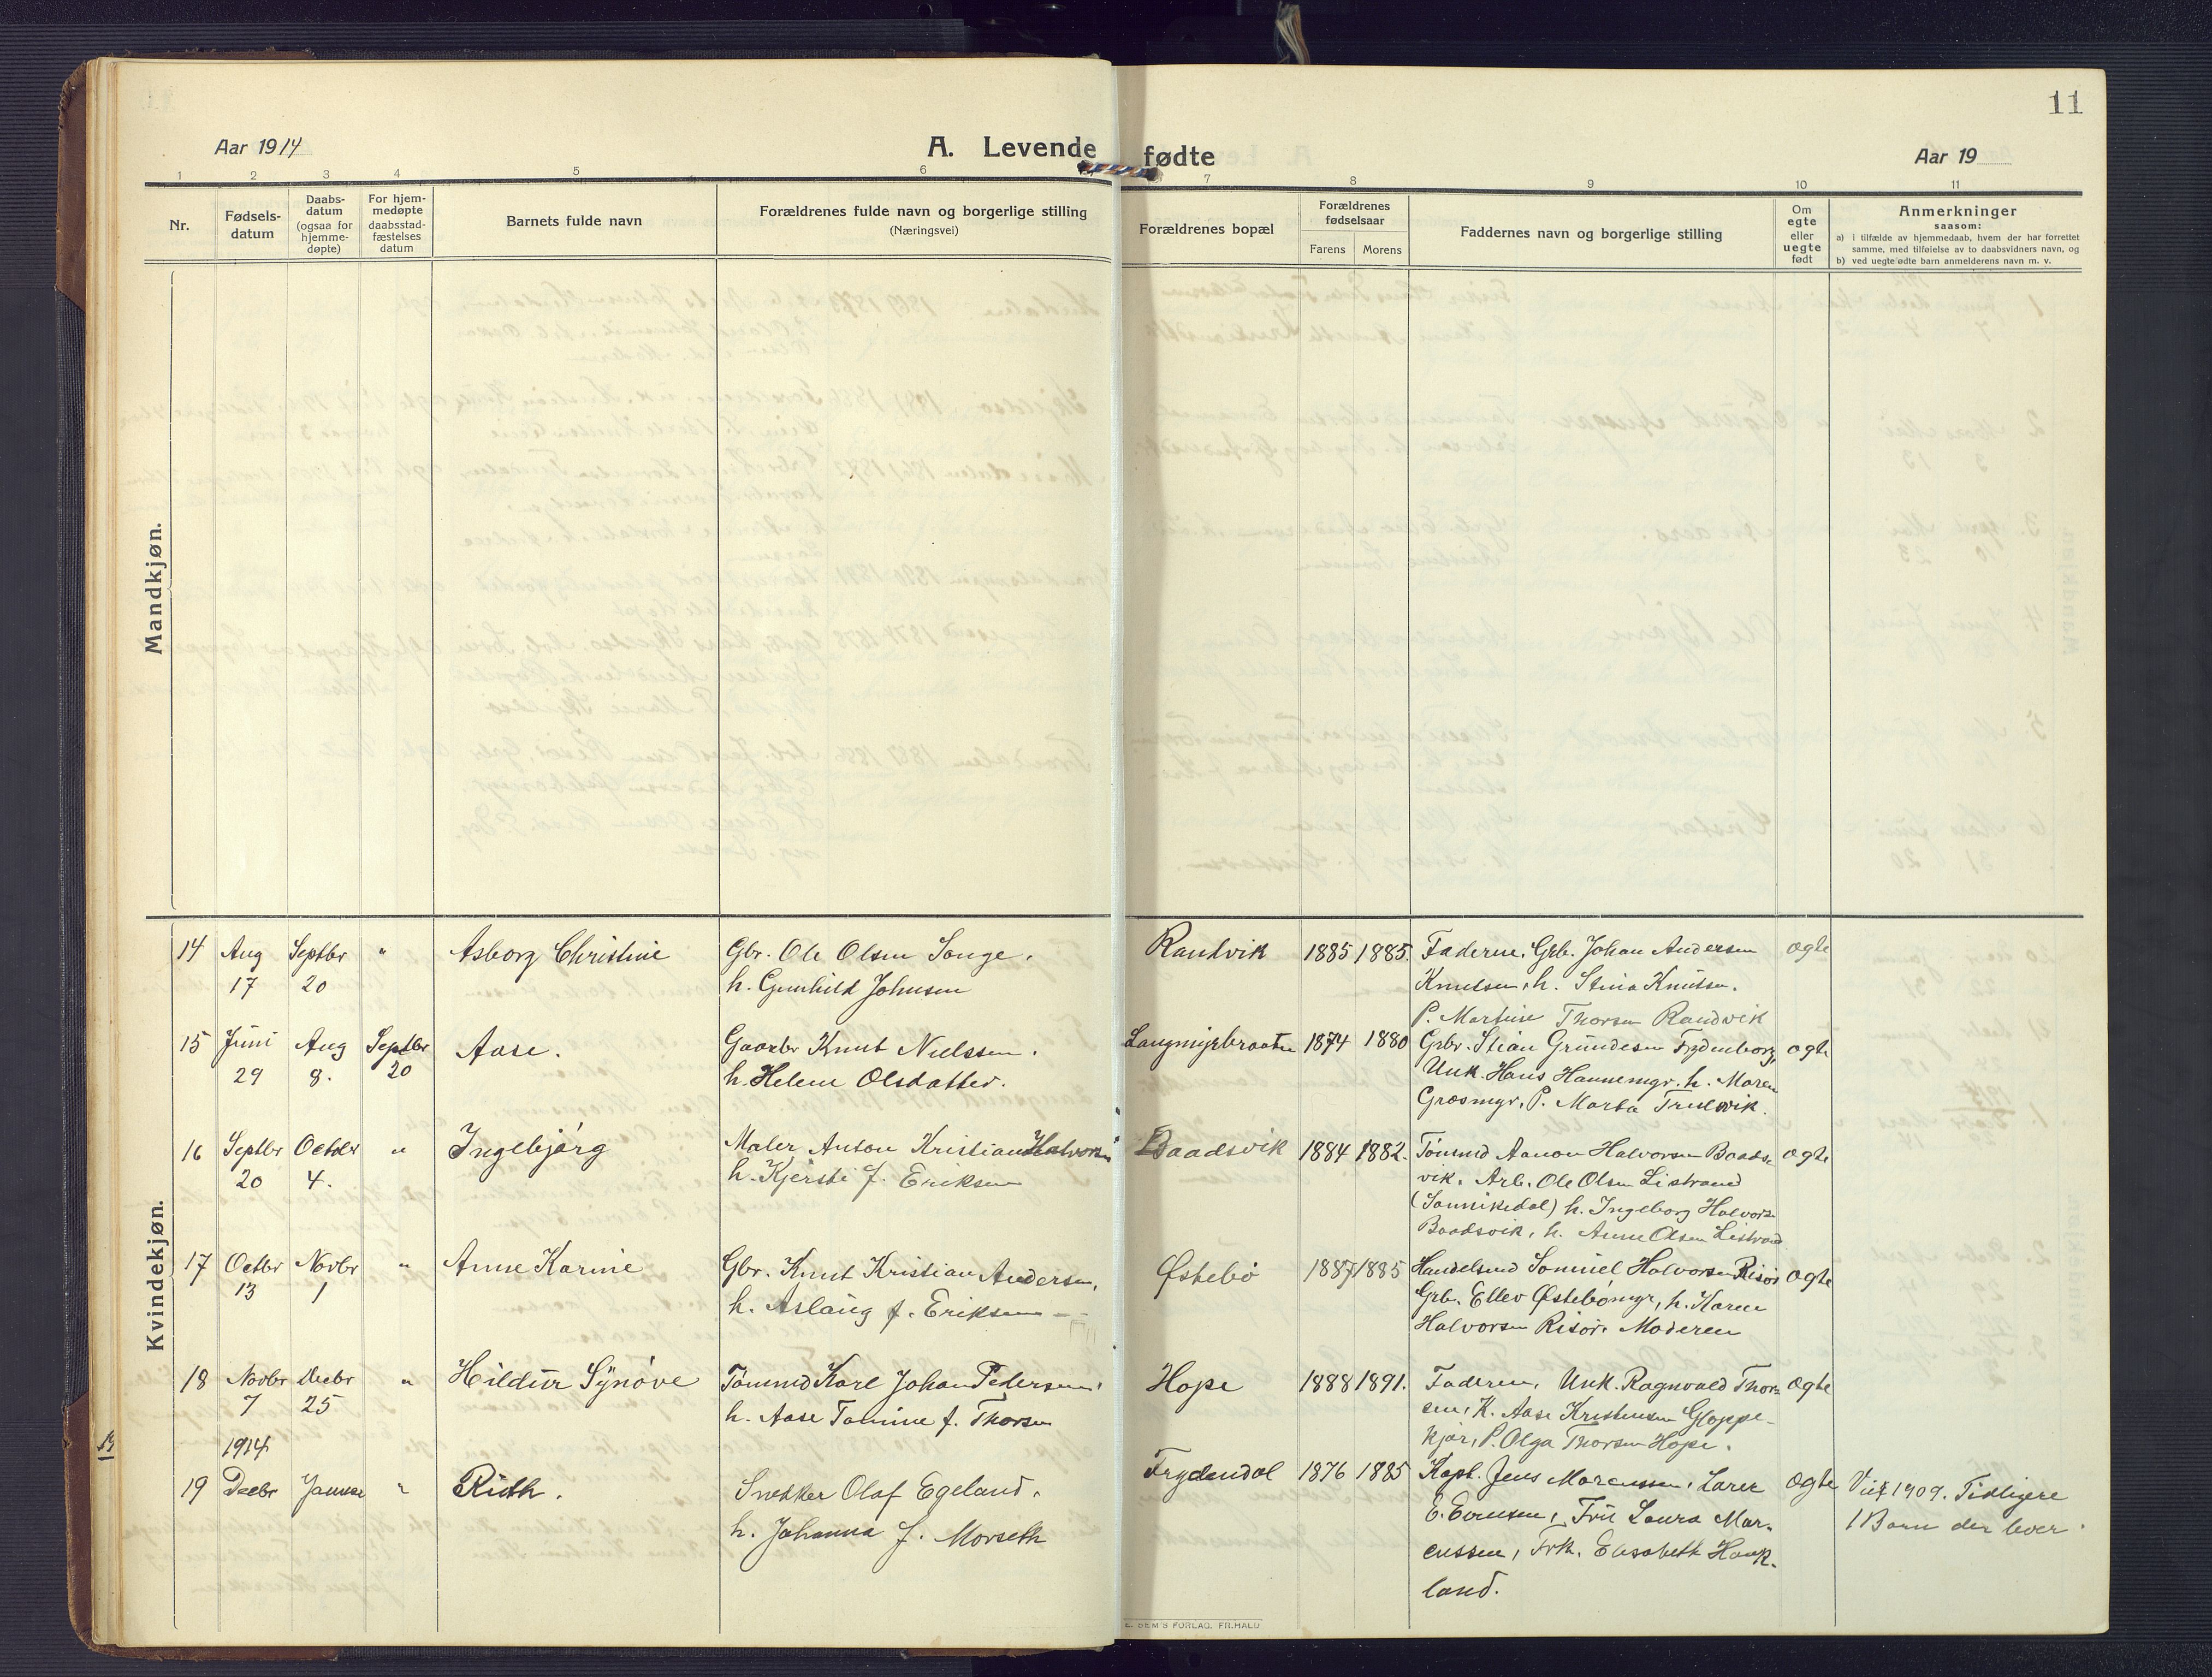 11
Aar 1914
A. Levende fødte
Aar 19
1 2 3 4 5 6 7 8 9 10 11
Nr.
Fødsels-
datum
Daabs-
datum
(ogsaa for
hjemme-
døpte)
For hjem-
medøpte
daabsstad-
fæstelses
datum
Barnets fulde navn
Forældrenes fulde navn og borgerlige stilling
(Næringsvei)
Forældrenes bopæl
Forældrenes
fødselsaar
Farens Morens
Faddernes navn og borgerlige stilling
Om
egte
eller
uegte
født
Anmerkninger
saasom:
a) i tilfælde av hjemmedaab, hvem der har forrettet
samme, med tilføielse av to daabsvidners navn, og
b) ved uegte ødte barn anmelderens navn m. v.
Mandkjøn.
Kvindekjøn.
14 Aug Septbr " Asborg Christine Gbr. Ole Olsen Songe. Randvik 1885 1885. Faderen, Grb. Johan Andersen ogte
17 20 h. Gunhild Johnsen Knudsen, h. Stina Knutsen.
P. Martine Thorsen Randvik
15 Juni Aug Septbr Aase. Gaarbr Knut Nielssen. Langmyrbraaten 1874 1880 Grbr. Stian Grundesen Frydenborg, ogte
29 8. 20 h. Helene Olsdatter. Unk. Hans Hannemyr. h. Maren
Grosmyr, P. Marta
16 Septbr Octbr " Ingebjørg Maler Anton Kristian Halvorsen Baadsvik 1884 1882. Tømmd Aanon Halvorsen Baads- ogte
20 4. h. Kjersti f. Eriksen vik. Arb. Ole Olsen Listrand
(Sannikedal) h. Ingeborg Halvors.
Baadsvik, h. Anne Olsen Listrand
17 Octbr Novbr " Anne Karine Gbr. Knut Kristian Andersen, Østebø 1887 1885 Handelsmd Samuel Halvorsen Risør ogte
13 1 h. Aslaug f. Eriksen Grb. Ellev Østebømyr, h. Karen
Halvorsen Risør. Moderen
18 Novbr Decbr " Hildur Synøve Tømmd Karl Johan Pedersen, Hope 1888 1891. Faderen, Unk. Ragnvald Thor- ogte
7 25 h. Aase Tomine f. Thorsen sen, K. Aase Kristensen Gloppe-
kjær, P. Olga Thorsen Hope.
1914
19 Decbr " Ruth. Snekker Olaf Egeland. Frydendal 1876 1885 Kapt. Jens Marcussen, Lærer ogte Viet 1909. Tidligere
h. Johanna f. Morseth E. Evensen, Fru Laura Mar- 1 Barn der lever.
cussen, Frk. Elisabeth Hauk-
land.
E. SEM'S FORLAG, FR.HALD